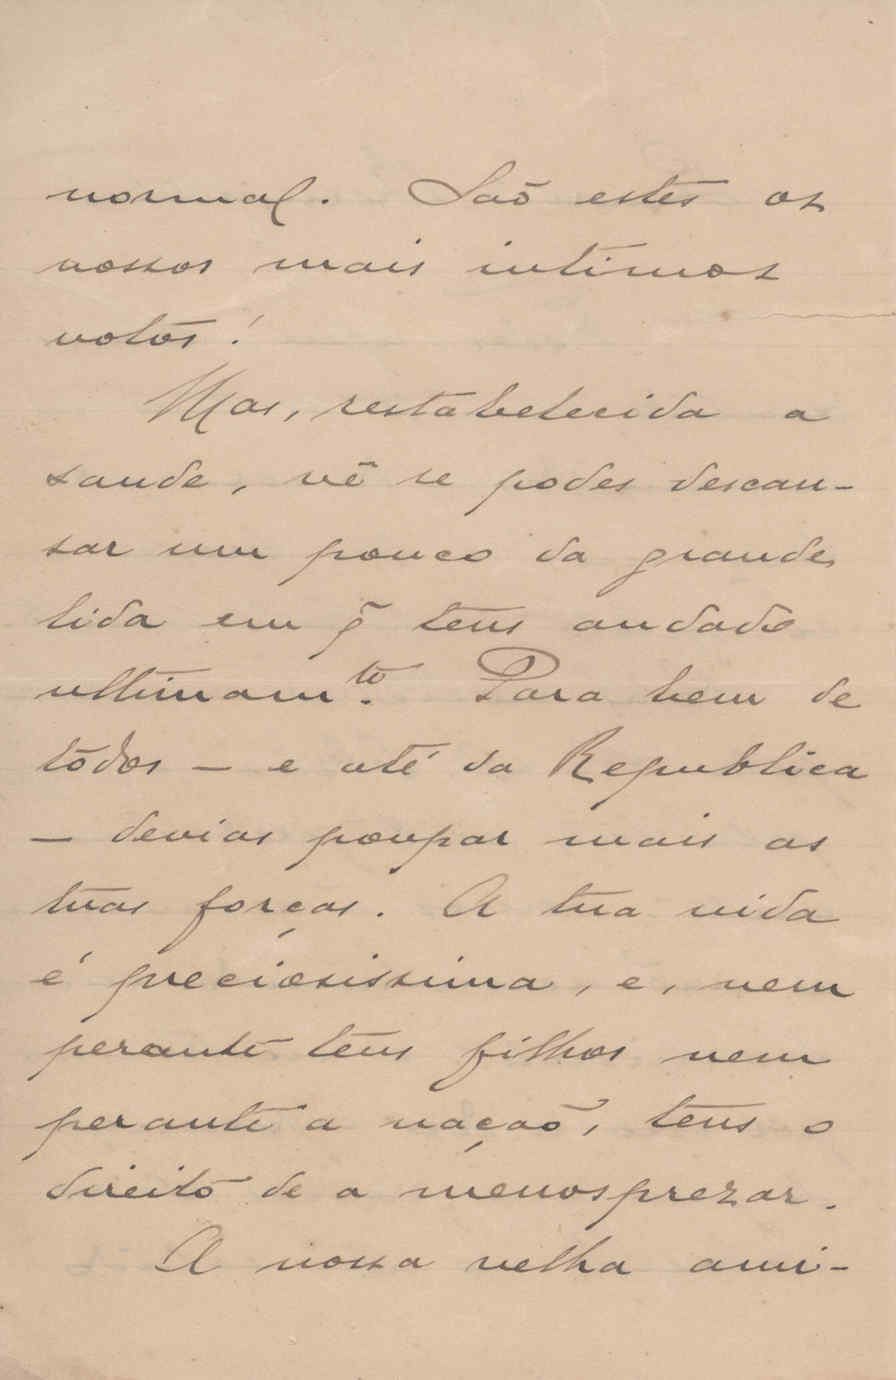 normal. Saõ estes os
nossos mais intimos
votos!
Mas, restabelecida a
saude, vê se podes descan-
sar um pouco da grande
lida em q̃ tens andado
ultimamto. Para bem de
tódos — e até da Republica
— devias poupar mais as
tuas forças. A tua vida
é preciosissima, e, nem
perante teus filhos nem
perante a naçaõ, tens o
direito de a menosprezar.
A nossa velha ami-